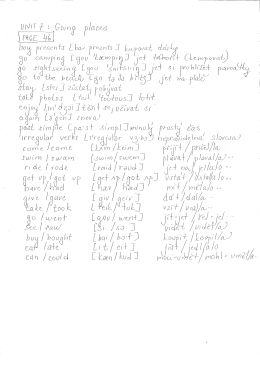 UNIT 7: Going places
PAGE 46
buy presents [bai prezents] kupovat dárky
go camping [gou kempiŋ] jet tábořit (kempovat)
go sightseeing [gou saitsiiŋ] jet si prohlížet památky
go to the beach [gou tu də bi:tš] jet na pláž
stay [stei] zůstat, pobývat
take photos [teik foutous] fotit
enjoy [in'džoi] těšit se, užívat si
again [ə'gein] znovu
past simple [pa:st simpl] minulý prostý čas
irregular verbs [i'regjulər və:bs] nepravidelná slovesa
come / came [kam / keim] přijít / přišel/a
swim / swam [swim / swem] plavat / plaval/a
ride / rode [raid / roud] jet na / jel/a
get up / got up [get ap / got ap] vstát / vstal/a
have / had [hæv / hæd] mít / měl/a
give / gave [giv / geiv] dát / dal/a
take / took [teik / tuk] vzít / vzal/a
go / went [gou / went] jít-jet / šel-jel
see / saw [si: / so:] vidět / viděl/a
buy / bought [bai / bo:t] koupit / koupil/a
eat / ate [i:t / eit] jíst / jedl/a
can / could [kæn / kud]